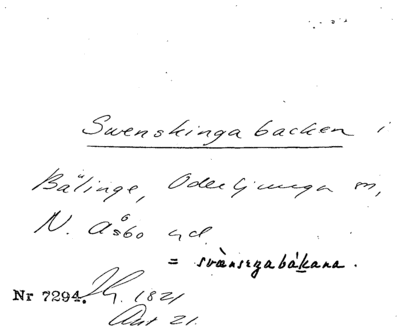 Swenskingabacken i
Bälinge, Oderljunga sn,
N. Åsbo hd
= svànsıgabákana.
Nr 7294. 1821
Akt 21.